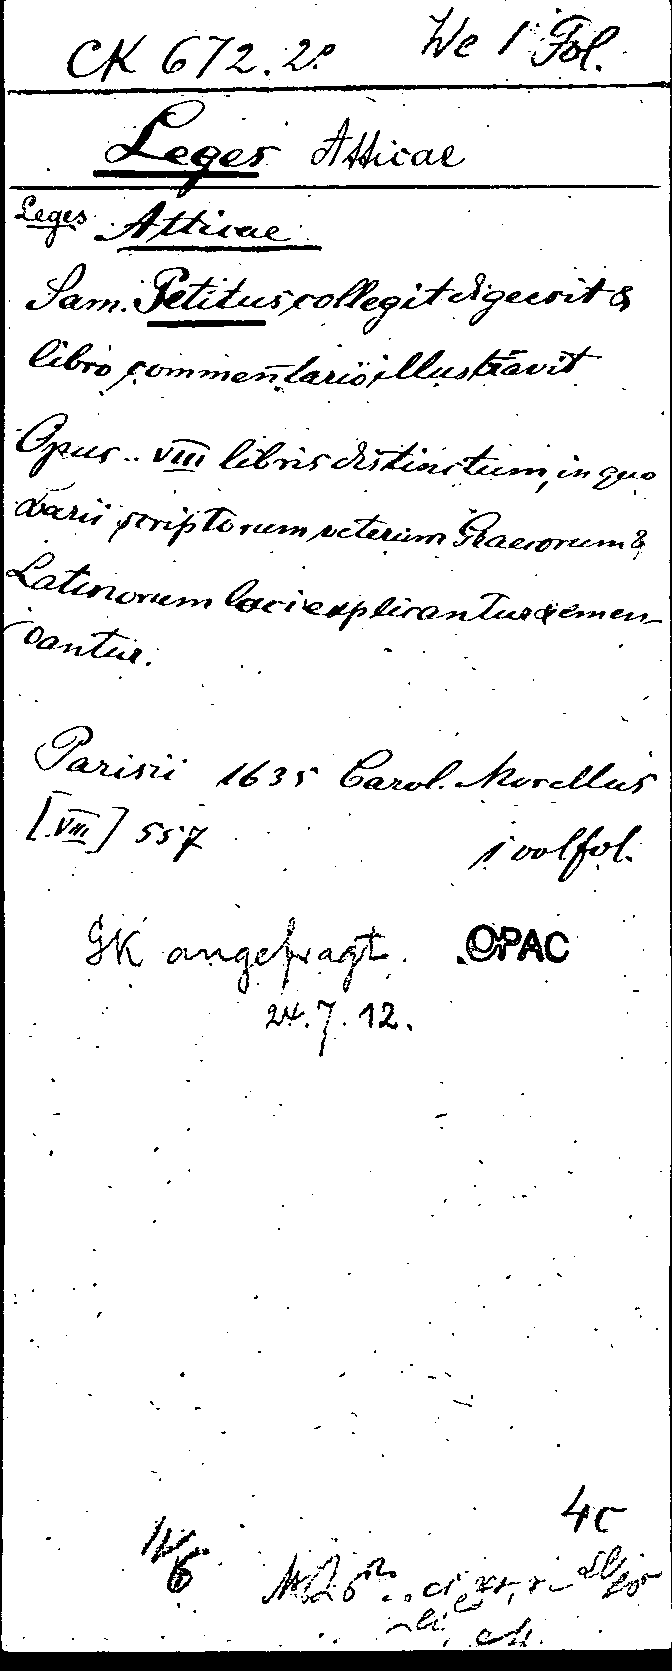 CK 672.2º We 1 Fol.
Leges Atticae
Leges Atticae
Sam. Petitus collegit digessit &
libro commentario illustravit
Opus .. VIII libris distinctum, in quo
varii scriptorum veterum Graecorum &
Latinorum loci explicantur & emen-
dantur.
Parisii 1635 Carol. Morellus
[VIII] 557 1 vol fol.
GK angefragt. OPAC
24.7.12.
4c